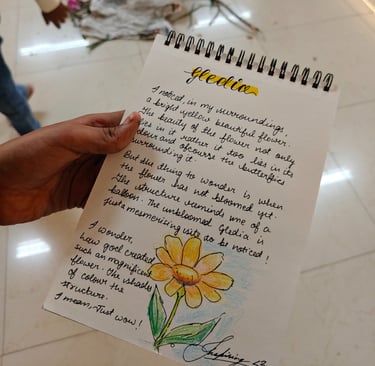 Gledia
I noticed, in my surroundings,
a bright yellow beautiful flower.
The beauty of the flower not only
lies in it rather it too lies in its
odour and ofcourse the butterflies
surrounding it.
But the thing to wonder is when
the flower has not bloomed yet.
The structure reminds me of a
balloon. The unbloomed Gledia is
just a mesmerizing site to be noticed!
I wonder,
how god created
such an magnificent
flower. The shades
of colour the
structure.
I mean, Just wow!